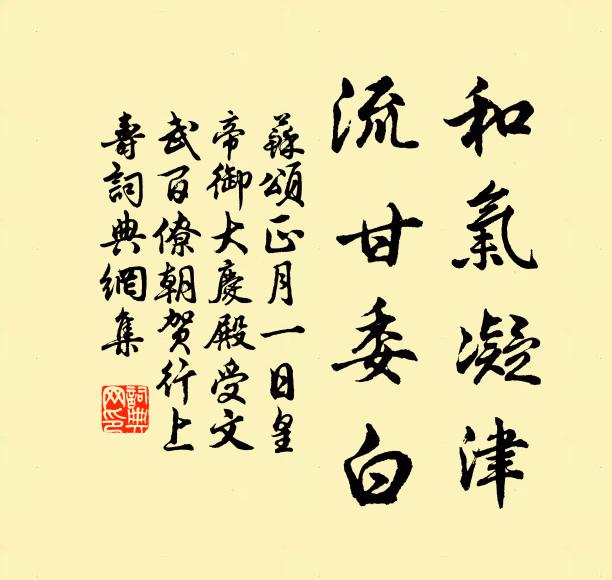 和氣凝津
流甘委白
蘇頌正月一日皇
帝御大慶殿受文
武百僚朝賀行上
壽詞典網集
詞典
网印